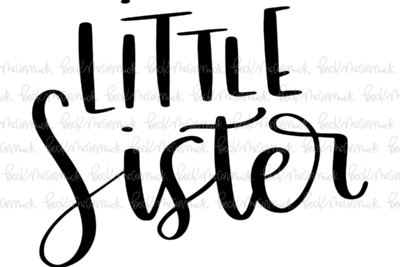 LiTTLE
Sister